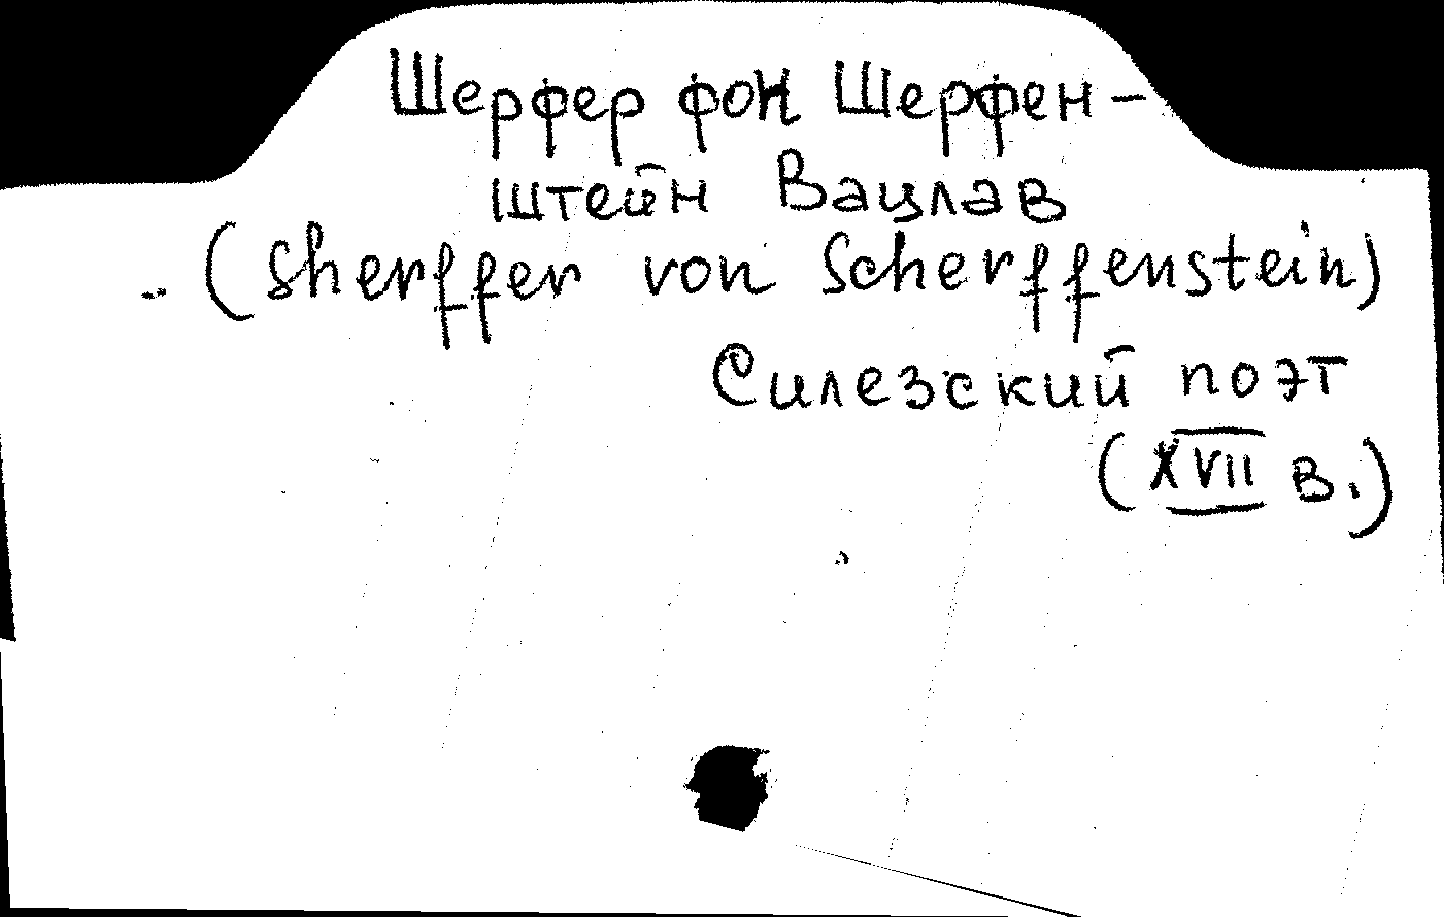 Шерфер фон Шерфен-
штейн Вацлав
(Sherffer von Scherffenstein)
Силезский поэт
(XVII в.)